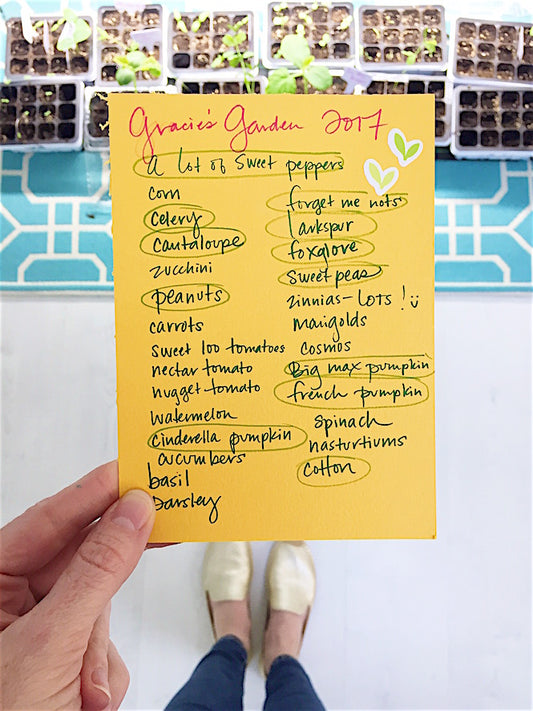 Gracie's Garden 2017
a lot of sweet peppers
corn
celery
cantaloupe
zucchini
peanuts
carrots
sweet 100 tomatoes
nectar tomato
nugget tomato
watermelon
cinderella pumpkin
cucumbers
basil
parsley
forget me nots
larkspur
foxglove
sweet peas
zinnias - LOTS!
marigolds
cosmos
Big max pumpkin
french pumpkin
spinach
nasturtiums
cotton